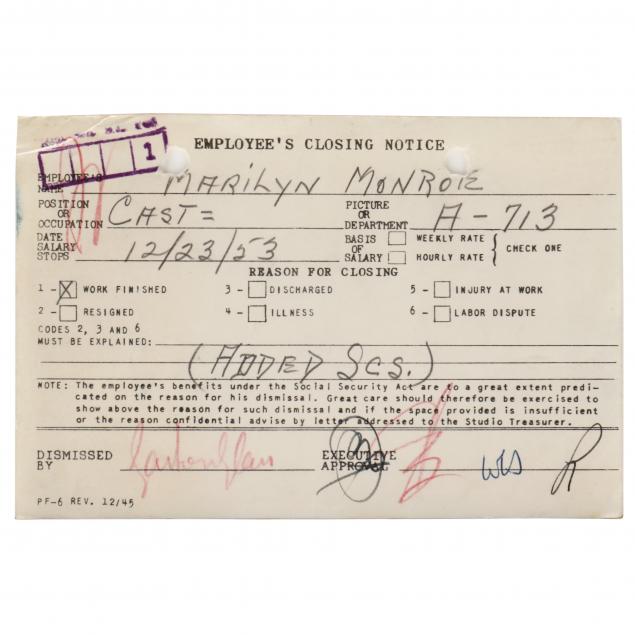 1
EMPLOYEE'S CLOSING NOTICE
EMPLOYEE'S NAME MARILYN MONROE
POSITION OR OCCUPATION CAST= PICTURE OR DEPARTMENT A-713
DATE SALARY STOPS 12/23/53 BASIS OF SALARY WEEKLY RATE HOURLY RATE CHECK ONE
REASON FOR CLOSING
1 - X WORK FINISHED 3 - DISCHARGED 5 - INJURY AT WORK
2 - RESIGNED 4 - ILLNESS 6 - LABOR DISPUTE
CODES 2, 3 AND 6
MUST BE EXPLAINED:
(ADDED SCS.)
NOTE: The employee's benefits under the Social Security Act are to a great extent predi-
cated on the reason for his dismissal. Great care should therefore be exercised to
show above the reason for such dismissal and if the space provided is insufficient
or the reason confidential advise by letter addressed to the Studio Treasurer.
DISMISSED BY EXECUTIVE APPROVAL R
PF-6 REV. 12/45